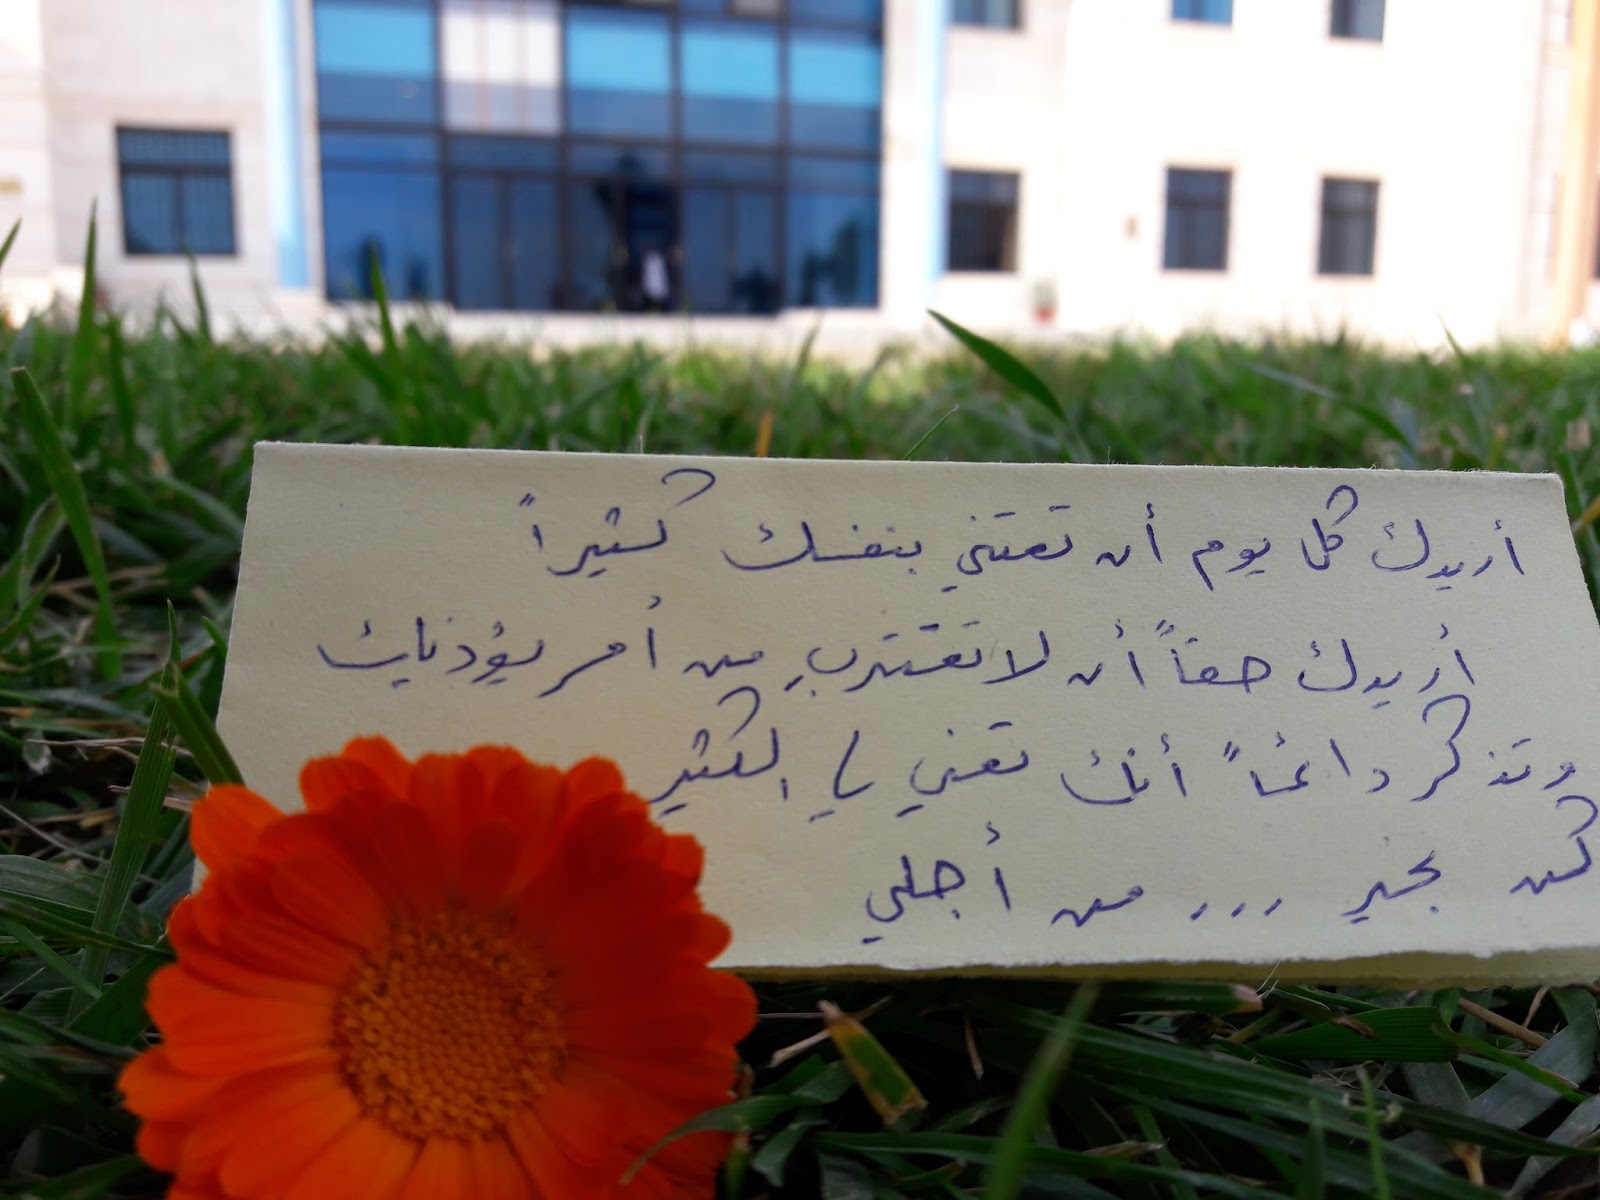 أريدك كل يوم أن تعتني بنفسك كثيراً
أريدك حقاً أن لا تقترب من أمر يؤذيك
وتذكر دائماً أنك تعني لي الكثير
كن بخير ... من أجلي